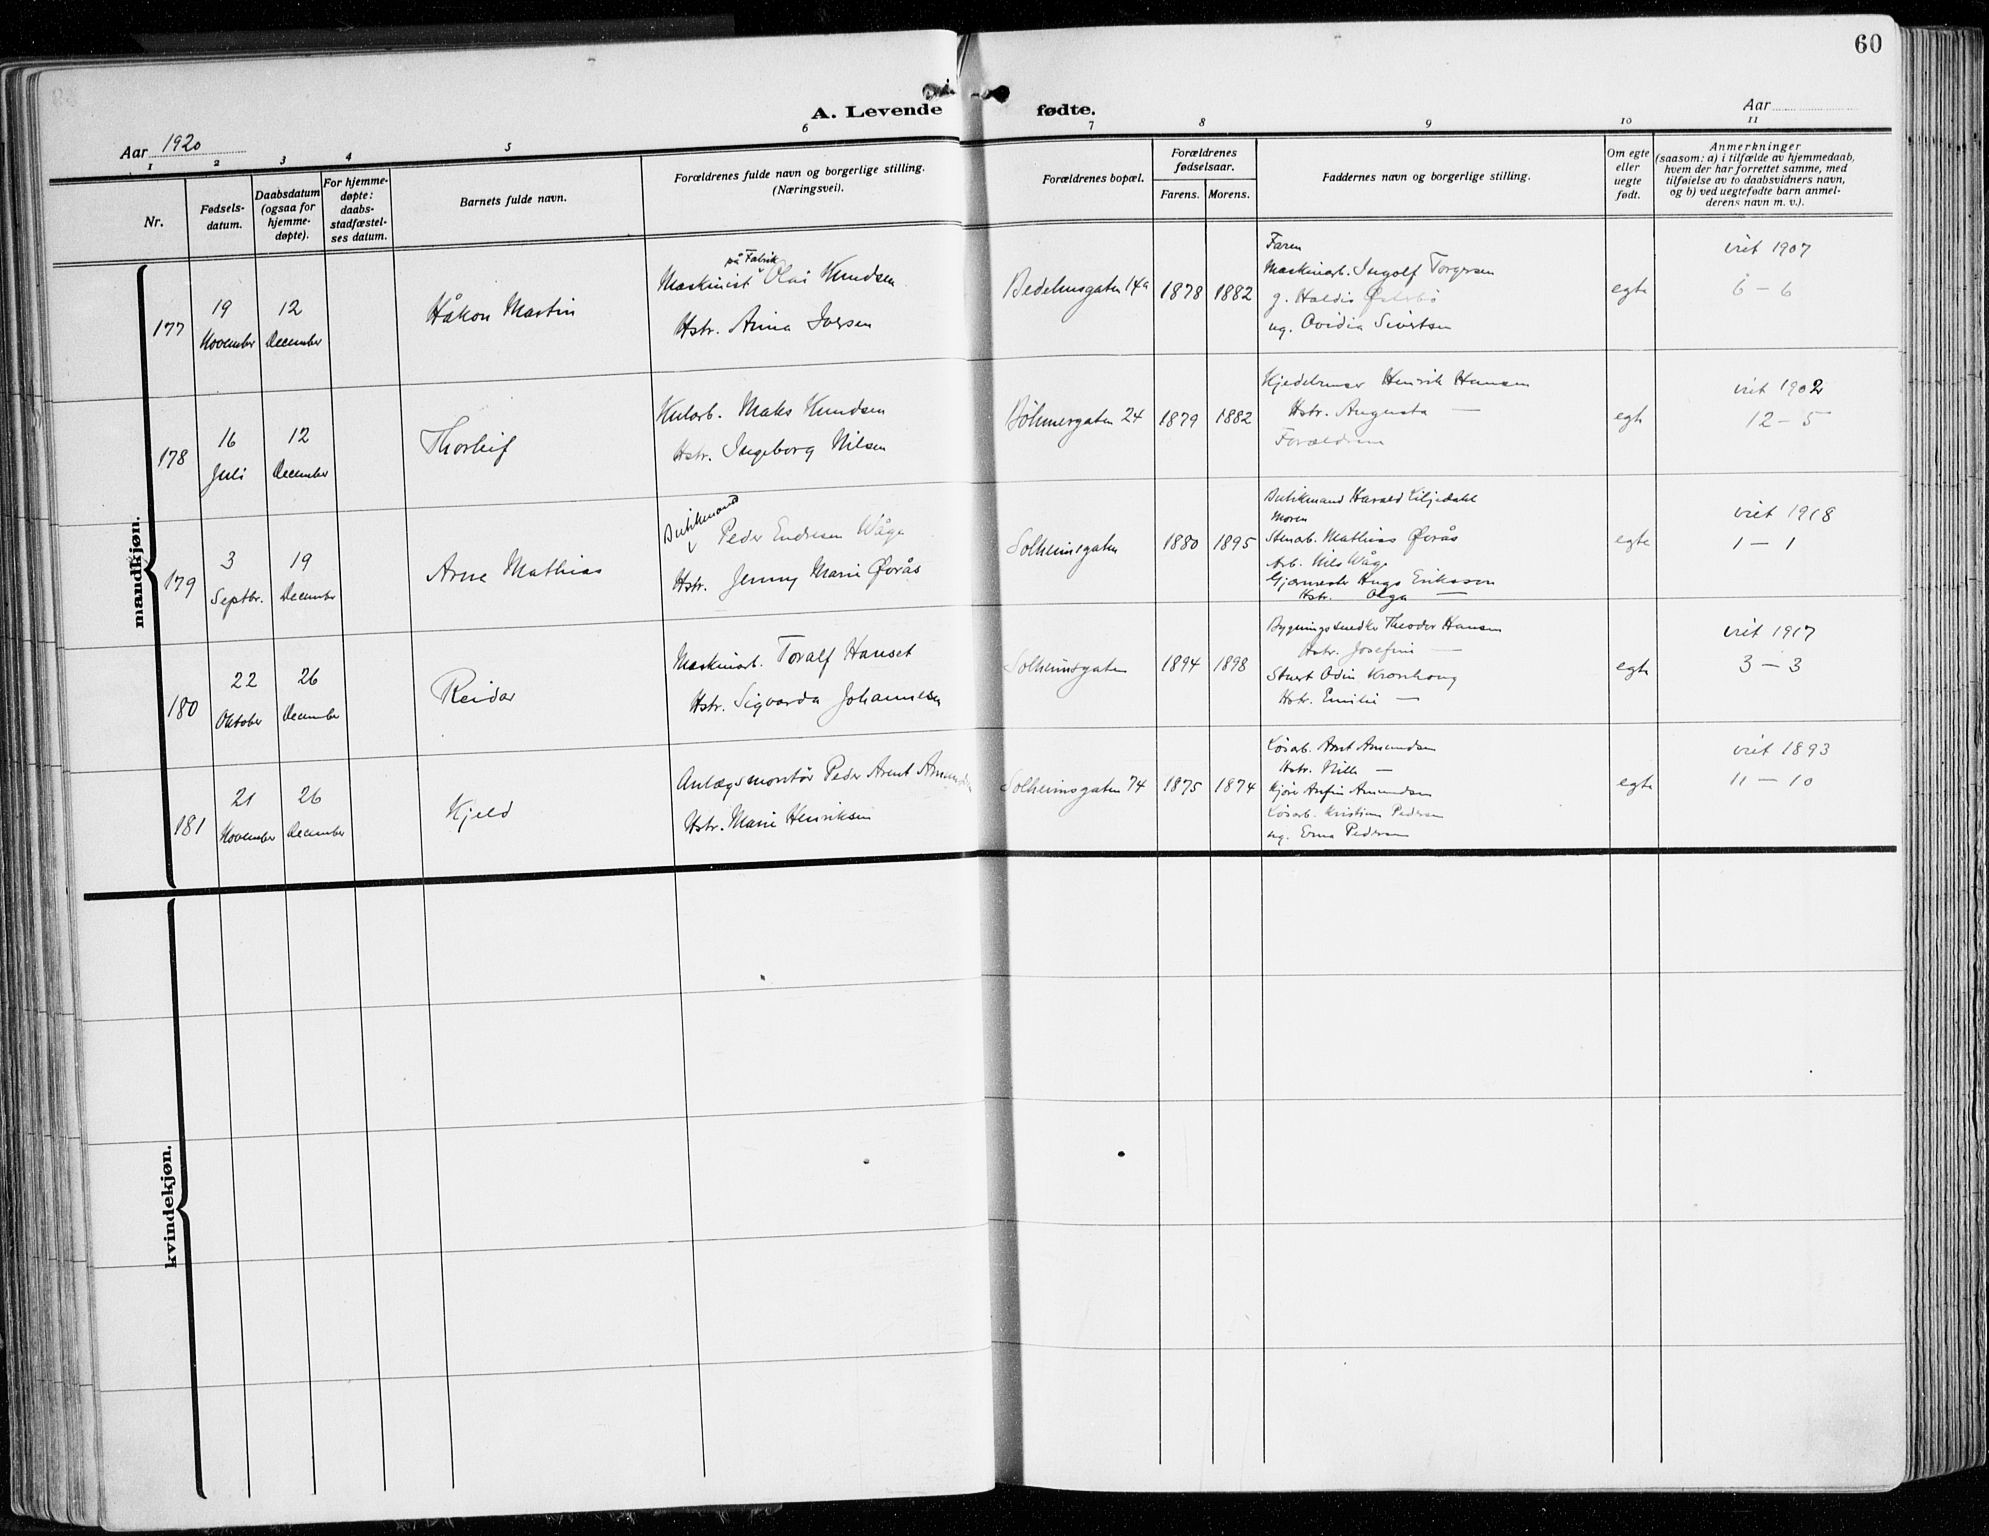 60
A. Levende fødte.
Aar 1920
Aar
1 2 3 4 5 6 7 8 9 10 11
Nr.
Fødsels-
datum.
Daabsdatum
(ogsaa for
hjemme-
døpte).
For hjemme-
døpte:
daabs-
stadfæstel-
ses datum.
Barnets fulde navn.
Forældrenes fulde navn og borgerlige stilling.
(Næringsvei).
Forældrenes bopæl.
Forældrenes
fødselsaar.
Farens. Morens.
Faddernes navn og borgerlige stilling.
Om egte
eller
uegte
født.
Anmerkninger
(saasom: a) i tilfælde av hjemmedaab,
hvem der har forrettet samme, med
tilføielse av to daabsvidners navn,
og b) ved uegtefødte barn anmel-
derens navn m. v.).
mandkjøn.
177
19
November
12
December
Håkon Martin
på Fabrik
Maskinist Olai Knudsen
Hstr. Anna Iversen
Bedehusgaten 14a
1878 1882
Faren
Maskinarb. Ingolf Torgersen
g. Haldis Østerbö
ug. Ovidia Sivertsen
egte
viet 1907
6 - 6
178
16
Juli
12
December
Thorleif
Kularb. Maks Knudsen
Hstr. Ingeborg Nilsen
Bøhmergaten 24
1879 1882
Kjedelrenser Henrik Hansen
Hstr. Augusta —
Forældrene
egte
viet 1902
12 - 5
179
3
Septbr.
19
December
Arne Mathias
Butikmand
Peder Endresen Våge
Hstr. Jenny Marie Øvrås
Solheimsgaten
1880 1895
Butikmand Harald Liljedahl
Moren
Stenarb. Mathias Øvrås
Arb. Nils Våge
Hugo Eriksson
Hstr. Olga —
egte
viet 1918
1 - 1
180
22
Oktober
26
December
Reidar
Maskinarb. Toralf Hanset
Hstr. Sigvarda Johannesen
Solheimsgaten
1894 1898
Bygningssnedker Theodor Hansen
Hstr. Josefine —
Stuert Odin Kronhaug
Hstr. Emilie —
egte
viet 1917
3 - 3
181
21
November
26
December
Kjeld
Anlægsmontør Peder Arent Amundsen
Hstr. Marie Henriksen
Solheimsgaten 74
1875 1874
Løsarb. Arnt Amundsen
Hstr. Nille —
Arfin Amundsen
Løsarb. Kristian Pedersen
ug. Erna Pedersen
egte
viet 1893
11 - 10
kvindekjøn.